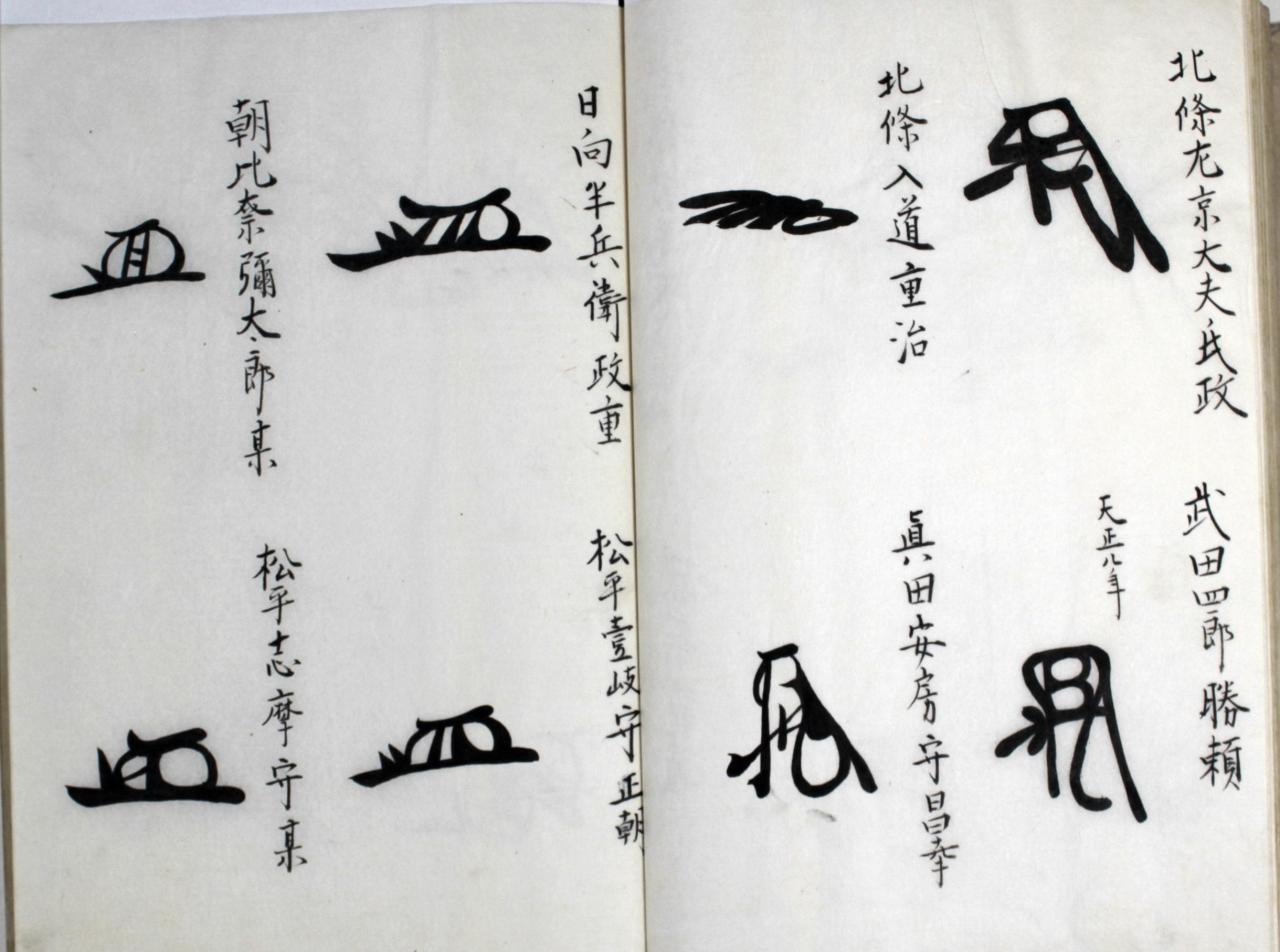 北條左京大夫氏政
武田四郎勝頼
天正八年
北條入道重治
眞田安房守昌幸
日向半兵衛政重
松平壹岐守正朝
朝比奈彌太郎某
松平志摩守某